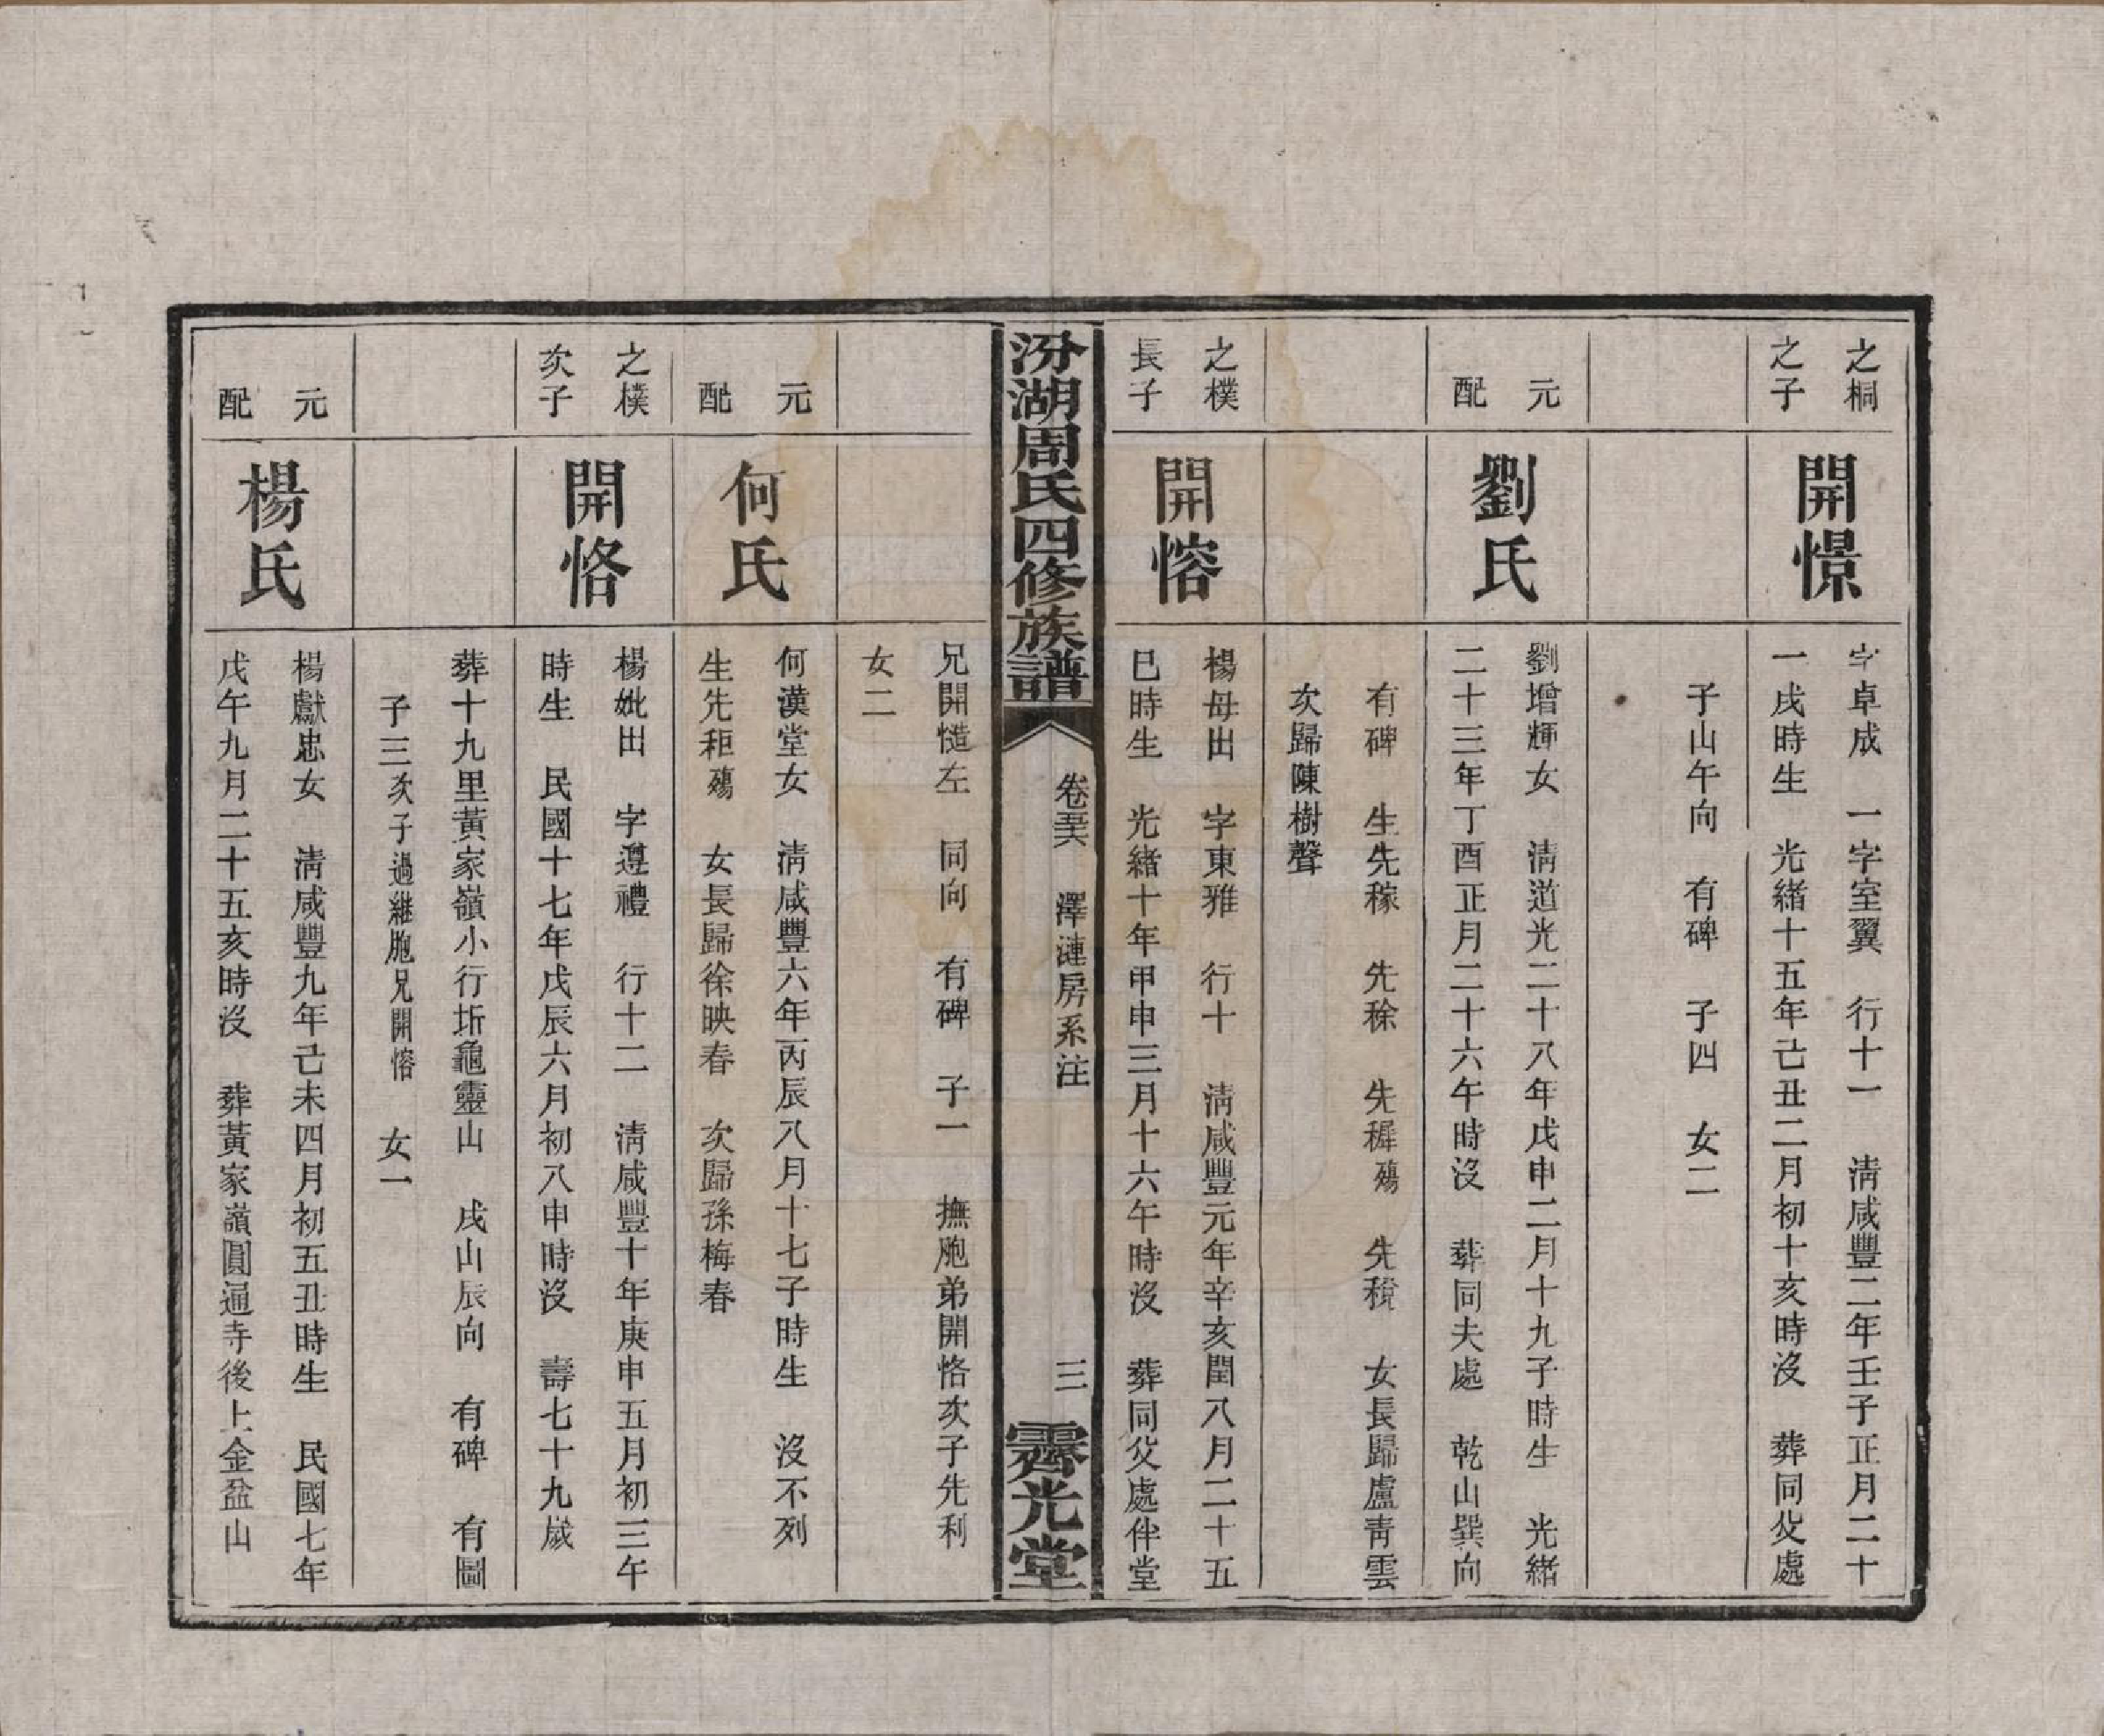 之桐
之子
開憬
字卓成　一字室翼　行十一　清咸豐二年壬子正月二十
一戌時生　光緒十五年己丑二月初十亥時沒　葬同父處
子山午向　有碑　子四　女二
元
配
劉氏
劉增輝女　清道光二十八年戊申二月十九子時生　光緒
二十三年丁酉正月二十六午時沒　葬同夫處　乾山巽向
有碑　生先稼　先稌　先穉殤　先稅　女長歸盧青雲
次歸陳樹聲
之樸
長子
開愹
楊母出　字東雅　行十　清咸豐元年辛亥閏八月二十五
巳時生　光緒十年甲申三月十六午時沒　葬同父處伴堂
汾湖周氏四修族譜
卷五六　澤漣房系注
三
霽光堂
兄開慥左　同向　有碑　子一　撫胞弟開恪次子先利
女二
元
配
何氏
何漢堂女　清咸豐六年丙辰八月十七子時生　沒不列
生先秬殤　女長歸徐映春　次歸孫梅春
之樸
次子
開恪
楊妣出　字遵禮　行十二　清咸豐十年庚申五月初三午
時生　民國十七年戊辰六月初八申時沒　壽七十九歲
葬十九里黃家嶺小行圻龜靈山　戌山辰向　有碑　有圖
子三次子過繼胞兄開愹　女一
元
配
楊氏
楊獻忠女　清咸豐九年己未四月初五丑時生　民國七年
戊午九月二十五亥時沒　葬黃家嶺圓通寺後上金盆山